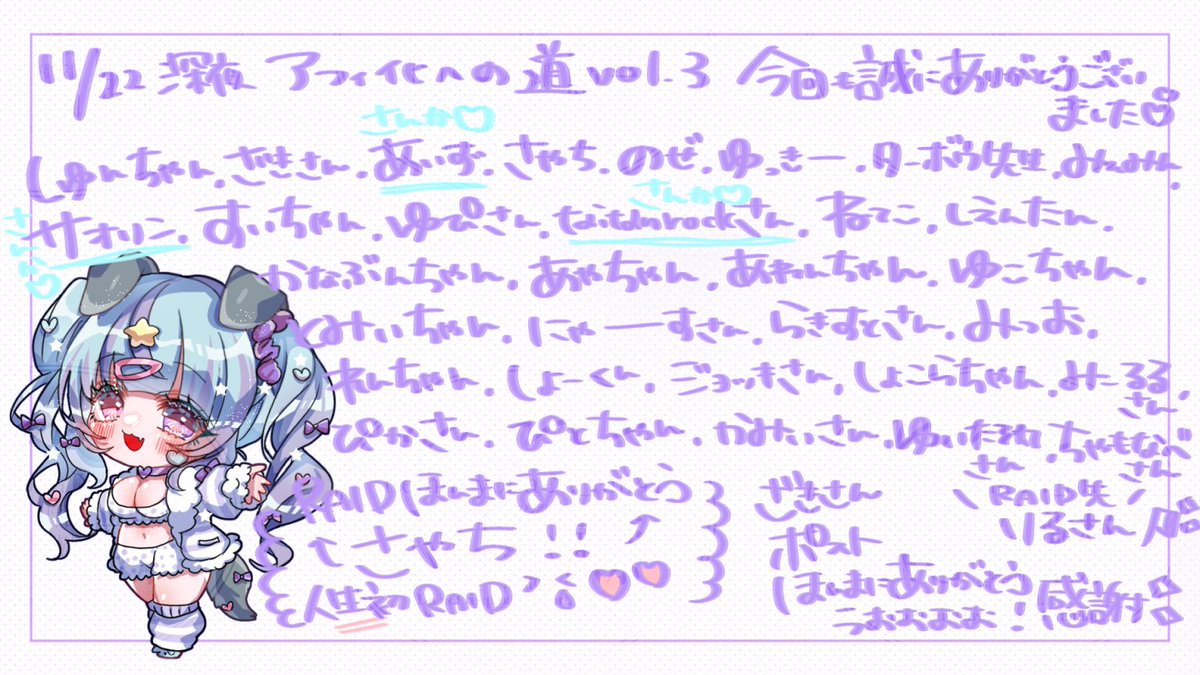 11/22 深夜 アフィ化への道 vol.3 今回も誠にありがとうござい
ました♡
さんか♡
しゅんちゃん. ざきさん. あいず. さやち. のぜ. ゆっきー. ターボウ先生. みんみん.
さんか♡
さんか♡
サオリン. すいちゃん. ゆぴさん. さん. ねてこ. しえんたん.
かなぶんちゃん. あやちゃん. あれんちゃん. ゆこちゃん.
とみぃちゃん. にゃーすさん. らきすとさん. みつお.
れんちゃん. しょーくん. ジョッキさん. しょこらちゃん. みーるる
さん.
ぴかさん. ぴとちゃん. かみたいさん. ゆいたみ
さん
. ちゃもなべ
さん
RAIDほんまにありがとう
↑さやち!!↑
人生初RAID ♡♡
ざきさん
ポスト
ほんまにありがとう
うおおおお!
\ RAID先 /
りるさん
感謝